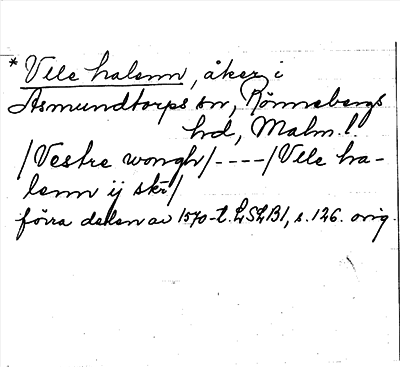 * Vele halenn, åker i
Asmundtorps sn, Rönnebergs
hd, Malm. l.
/Vestre wongh/----/Vele ha-
lenn ij skr/
förra delen av 1570-t. LSLB1, s. 126. orig.